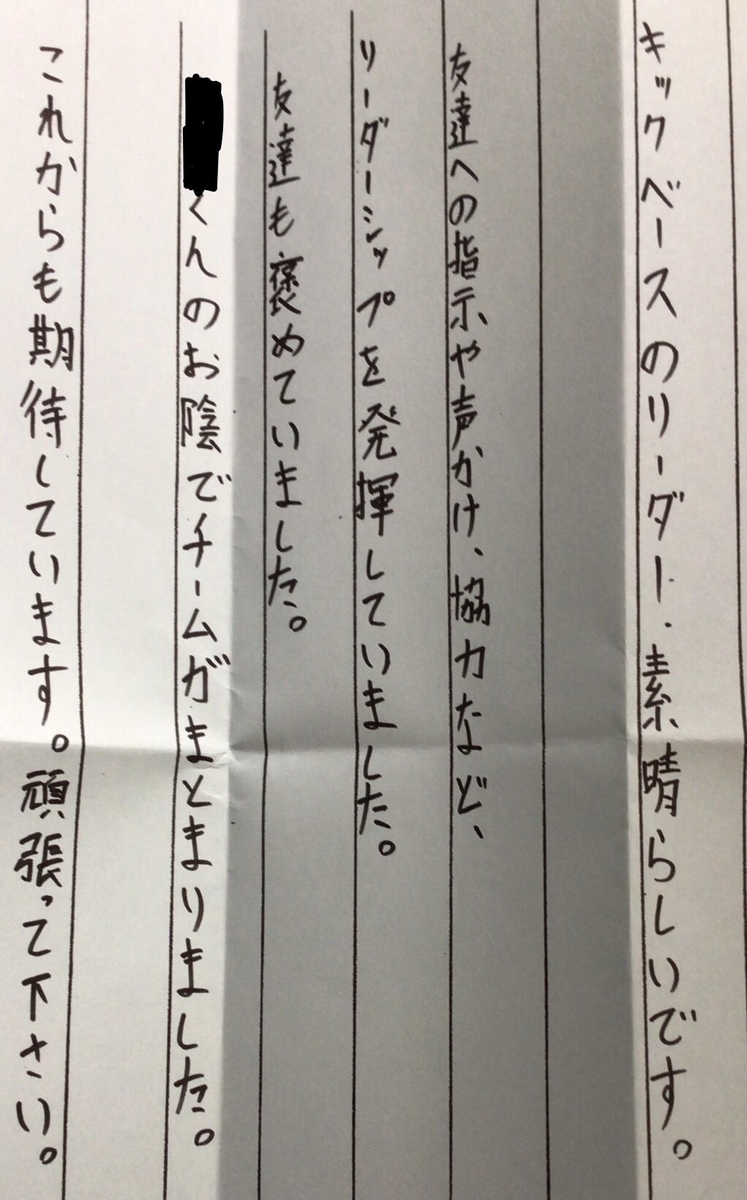 キックベースのリーダー、素晴らしいです。
友達への指示や声かけ、協力など、
リーダーシップを発揮していました。
友達も褒めていました。
くんのお陰でチームがまとまりました。
これからも期待しています。頑張って下さい。